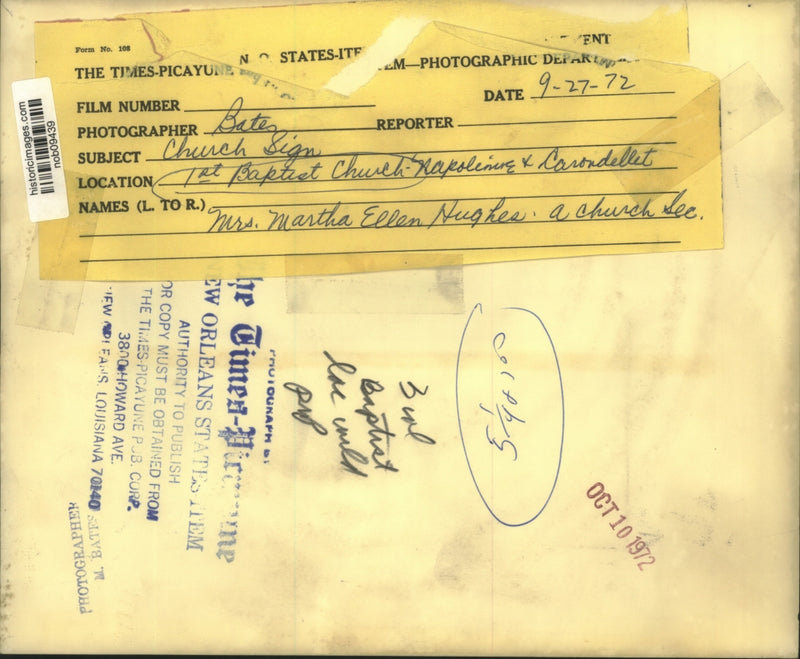 Form No. 108
THE TIMES-PICAYUNE N. O. STATES-ITEM—PHOTOGRAPHIC DEPARTMENT
FILM NUMBER
DATE 9-27-72
PHOTOGRAPHER Bates REPORTER
SUBJECT Church Sign
LOCATION 1st Baptist Church Napolinne & Carondellet
NAMES (L. TO R.) Mrs. Martha Ellen Hughes. a church Sec.
historicimages.com
nob09439
PHOTOGRAPH BY
The Times-Picayune
NEW ORLEANS STATES-ITEM
AUTHORITY TO PUBLISH
OR COPY MUST BE OBTAINED FROM
THE TIMES-PICAYUNE PUB. CORP.
3800 HOWARD AVE.
NEW ORLEANS, LOUISIANA 70140
M. BATES
PHOTOGRAPHER
3 col
Baptist
OCT 10 1972